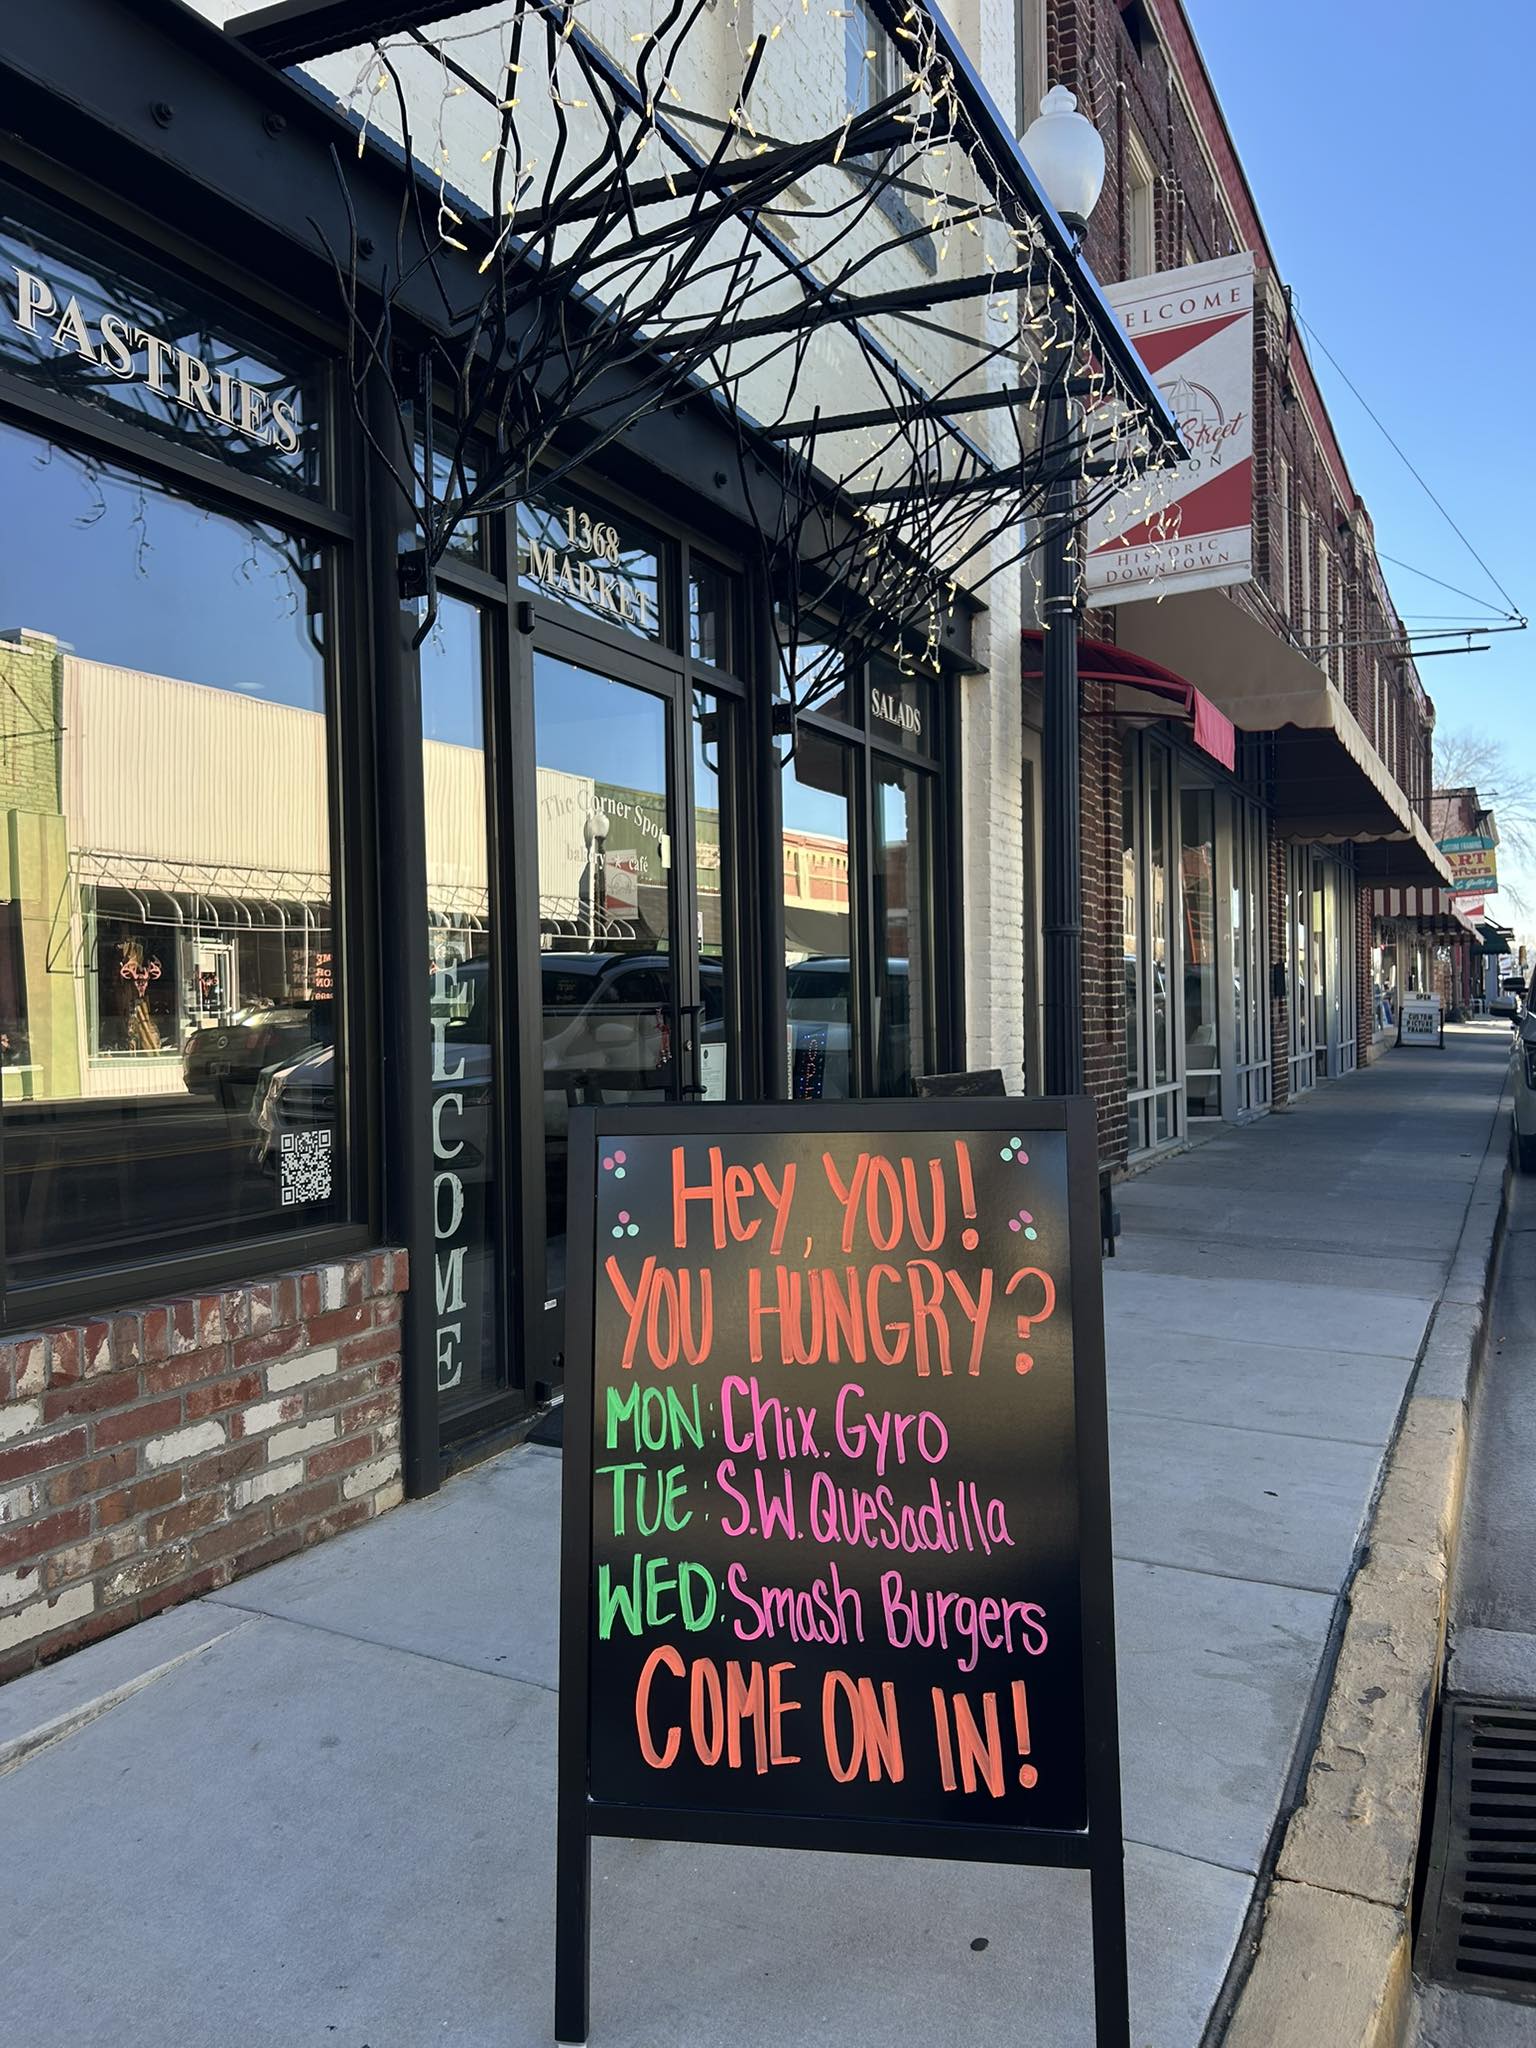 PASTRIES
1368
MARKET
SALADS
The Corner Spot
bakery * café
WELCOME
ELCOME
Street
ON
HISTORIC
DOWNTOWN
CUSTOM FRAMING
ART
Gallery
OPEN
CUSTOM
PICTURE
FRAMING
Hey, YOU!
YOU HUNGRY?
MON: Chix. Gyro
TUE: S.W. Quesadilla
WED: Smash Burgers
COME ON IN!